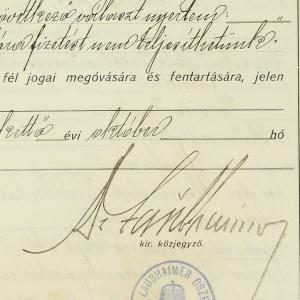 következő választ nyertem:
fizetést nem teljesíthetünk."
fél jogai megóvására és fentartására, jelen
kettő évi október hó
Dr Laubhaimer
kir. közjegyző.
LAUBHAIMER OSZK